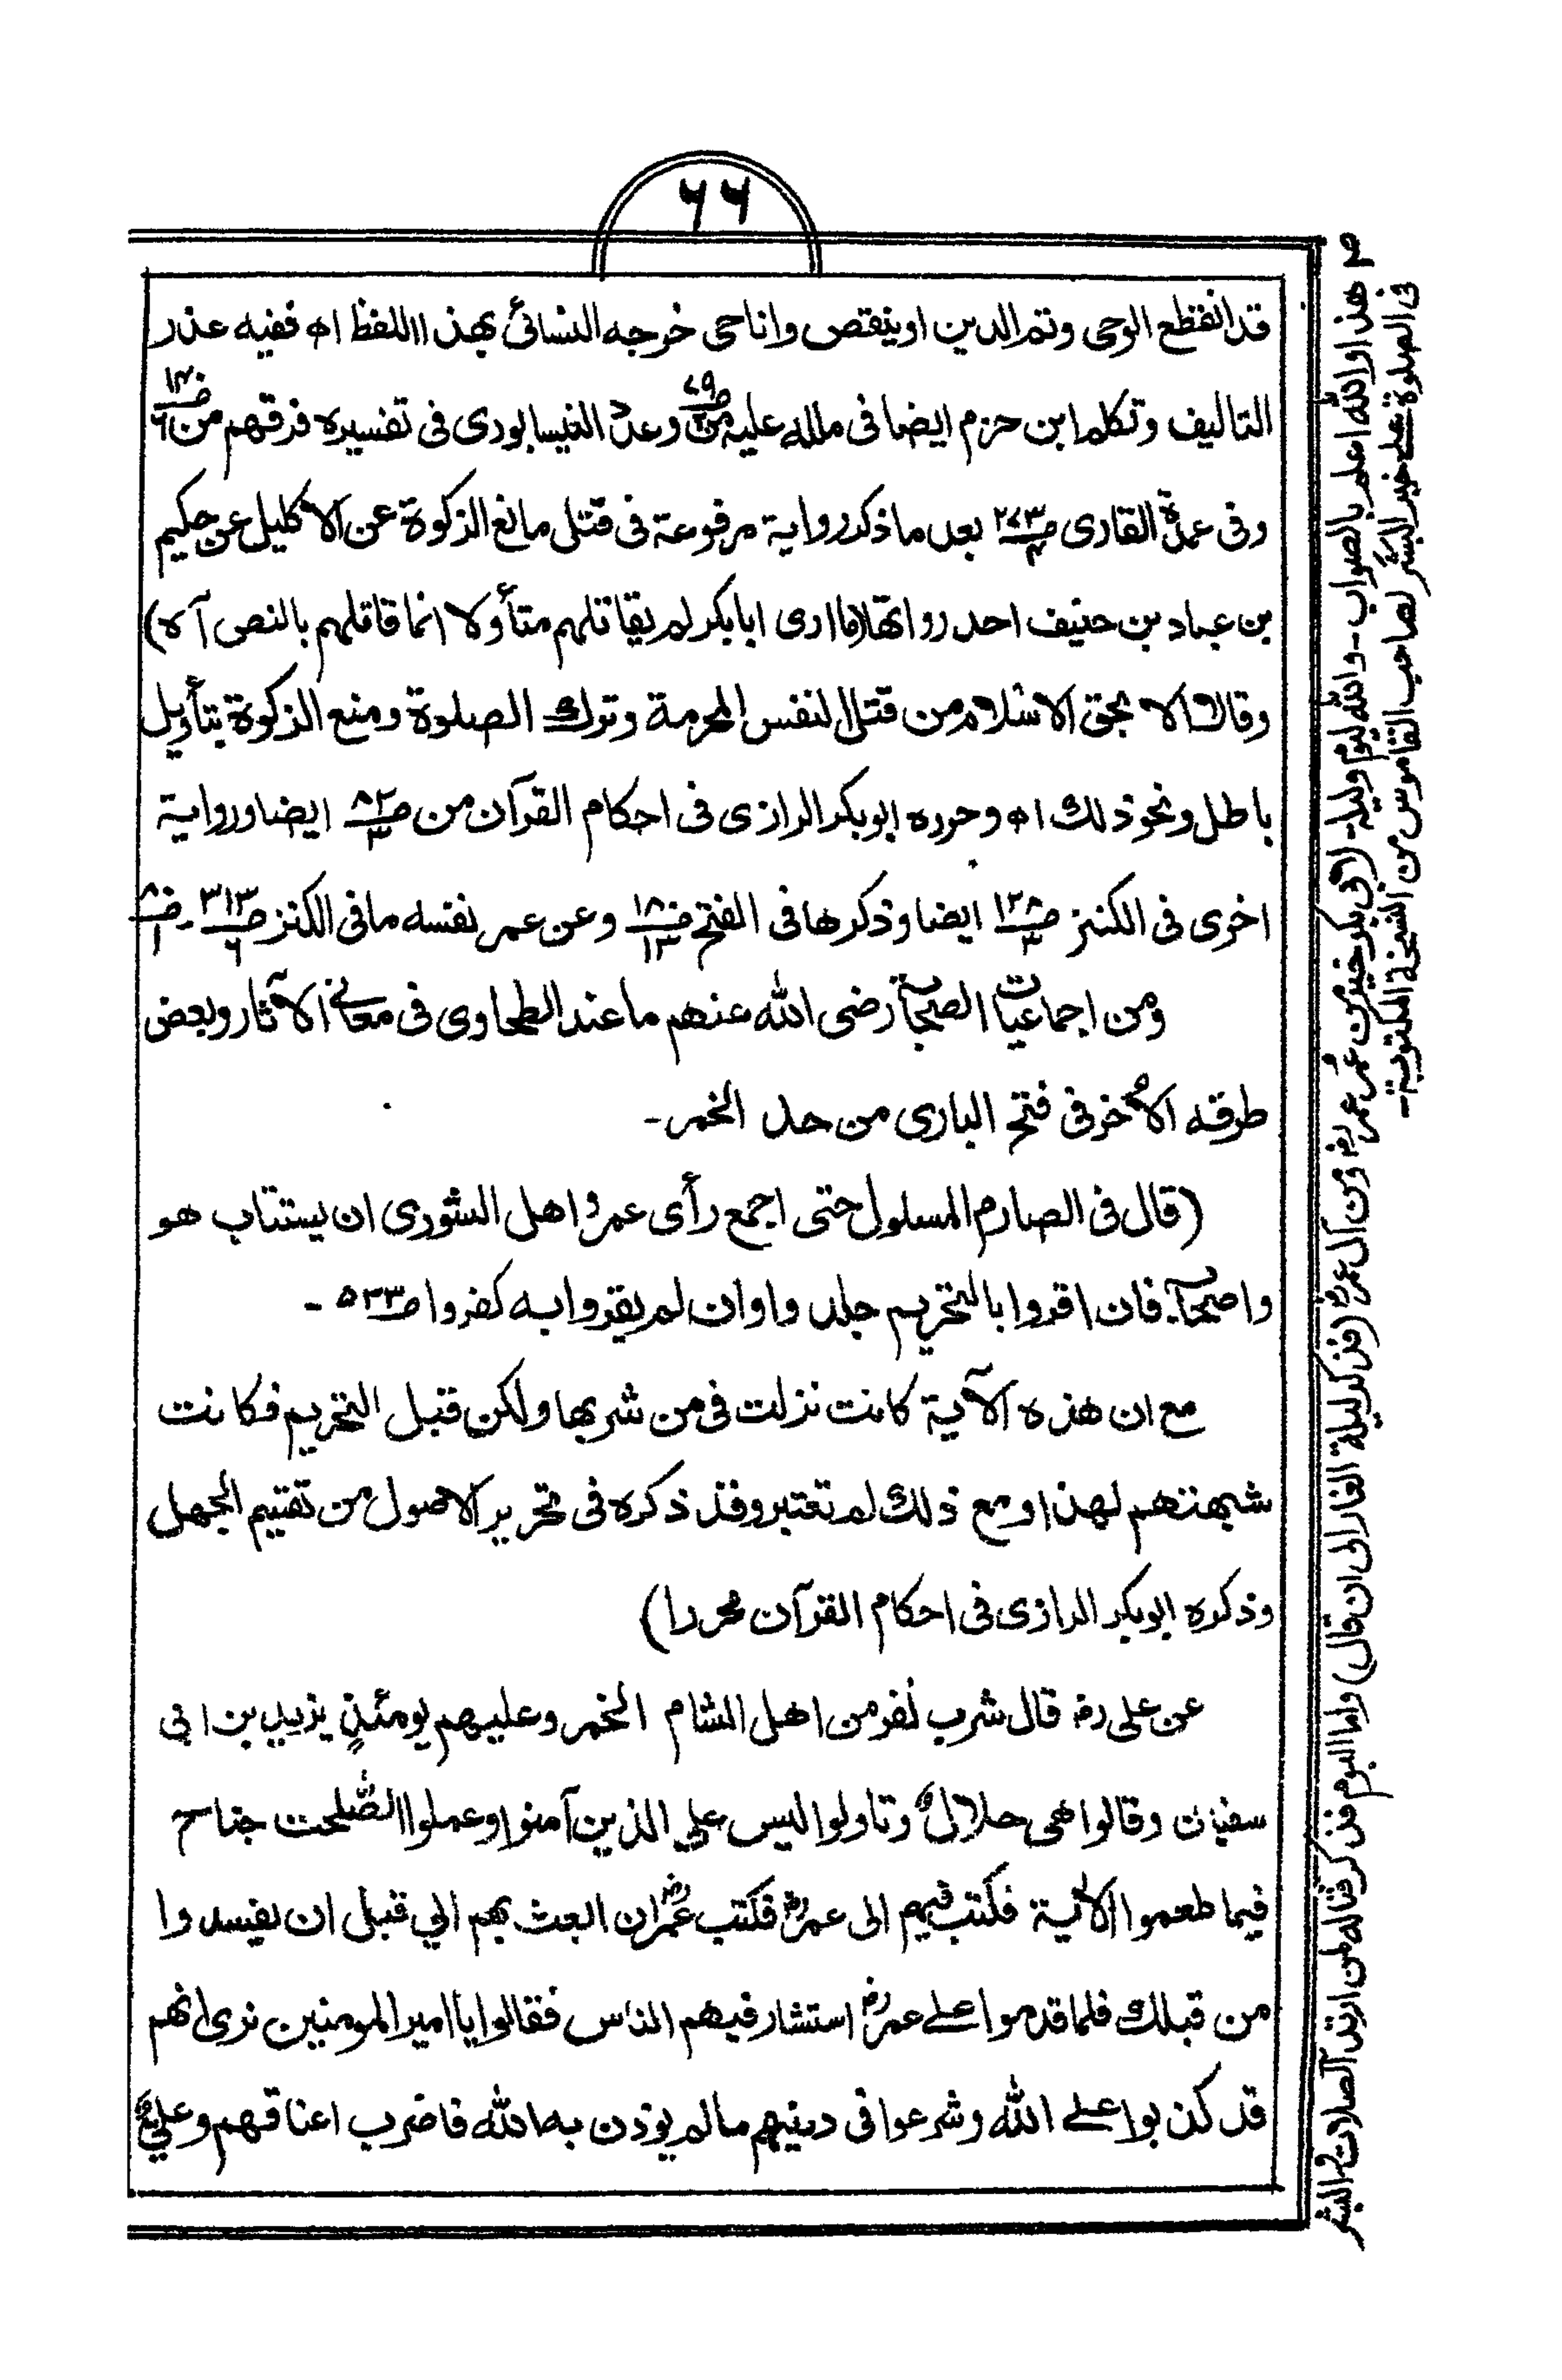 ٦٦
قد انقطع الوحى وتم الدين اوينقص واناحى خرجه النسائى بهذا اللفظ اھ ففيه عذر
التاليف وتكلم ابن حزم ايضا فى ملله عليه من ص٧٩ وعدّ النيسابورى فى تفسيره فرقهم من ص١٣٠/٦
وفى عمدة القارى ص٢٧٣/٤ بعد ما ذكر رواية مرفوعة فى قتل مانع الزكوة عن الاكليل عن حكيم
بن عباد بن حنيف احد رواتها ما ارى ابابكر لم يقاتلهم متأولا انما قاتلهم بالنص آه)
وقال الا بحق الاسلام من قتل النفس المحرمة وترك الصلوة ومنع الزكوة بتأويل
باطل ونحو ذلك اھ وحرره ابوبكر الرازى فى احكام القرآن من ص٨٢/٣ ايضا ورواية
اخرى فى الكنز ص١٢٨/٣ ايضا وذكرها فى الفتح ص١٨٠/١٣ وعن عمر نفسه ما فى الكنز ص٣١٣/٦ - ص٨٠/١
ومن اجماعيات الصحابة رضى الله عنهم ما عند الطحاوى فى معانى الآثار وبعض
طرقه الاخر فى فتح البارى من حد الخمر-
(قال فى الصارم المسلول حتى اجمع رأى عمر واهل الشورى ان يستتاب هو
واصحابه فان اقروا بالتحريم جلدوا وان لم يقروا به كفروا ص٥٣٣ -
مع ان هذه الآية كانت نزلت فى من شربها ولكن قبل التحريم فكانت
شبهتهم لهذا ومع ذلك لم تعتبر وقد ذكره فى تحرير الاصول من تقسيم الجهل
وذكره ابوبكر الرازى فى احكام القرآن محررا)
عن على رض قال شرب نفر من اهل الشام الخمر وعليهم يومئذٍ يزيد بن ابى
سفيان وقالوا هى حلال وتاولوا ليس على الذين آمنوا وعملوا الصّٰلحٰت جناح
فيما طعموا الآية فكتب فيهم الى عمر رض فكتب عمر رض ان ابعث بهم الي قبل ان يفسدوا
من قبلك فلما قدموا على عمر رض استشار فيهم الناس فقالوا يا امير المومنين نرى انهم
قد كذبوا على الله وشرعوا فى دينهم ما لم يوذن به الله فاضرب اعناقهم وعلي رض
هذا والله اعلم بالصواب - والله ليوم وليلة لابى بكر خير من عمر عمر رض ومن آل عمر رض (فذكر ليلة الغار الى ان قال) واما اليوم فذكر قتاله لمن ارتد الصلات والبشر
فى الصلوة على خير البشر لصاحب القاموس من النسخة المكتوبة -